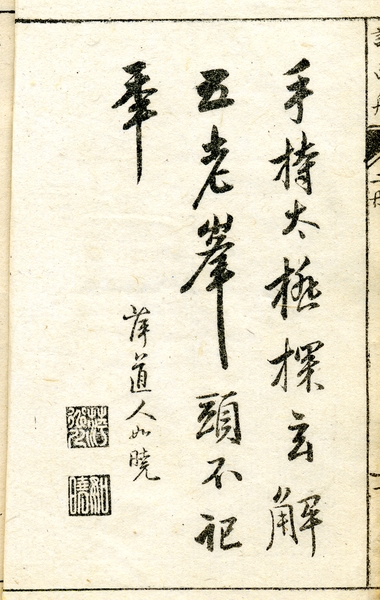 手持太極探玄解
五老峯頭不記
年
萍道人如曉
如曉